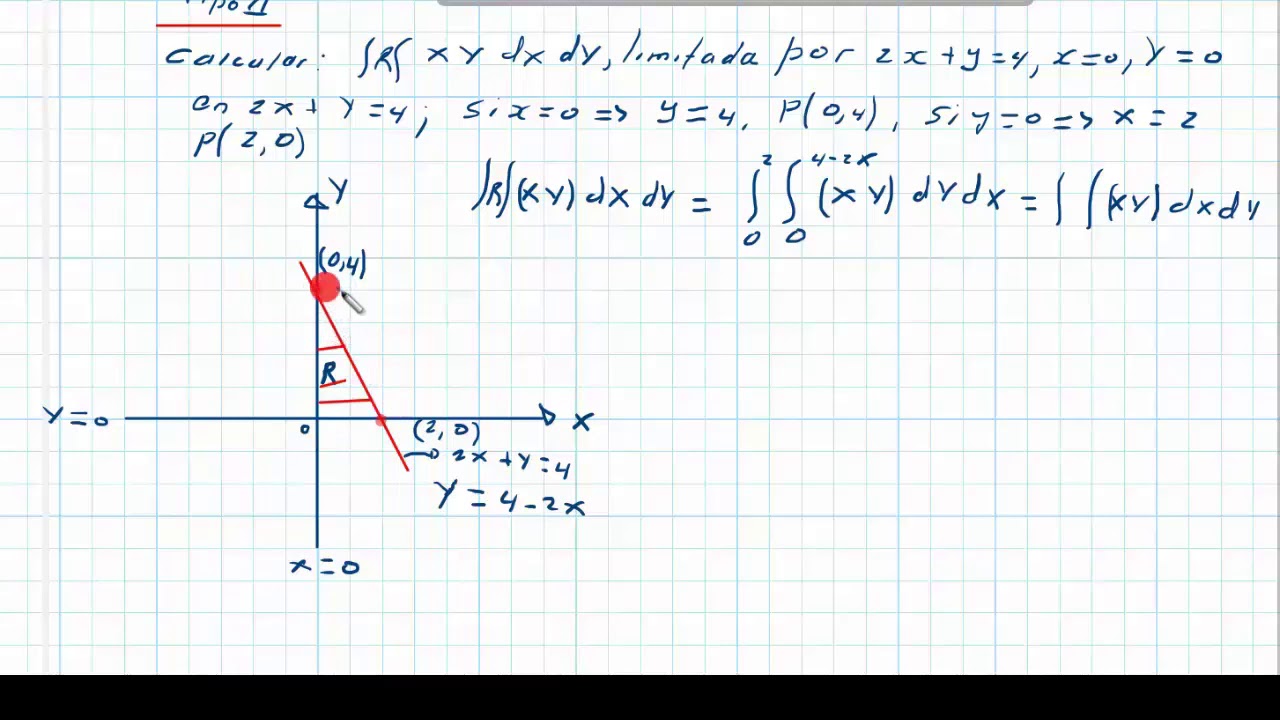 Tipo II
Calcular: ∫R∫ XY dx dy, limitada por 2x+y=4, x=0, Y=0
en 2x+Y=4; si x=0 => y=4, P(0,4), si y=0 => x=2
P(2,0)
∫R∫(XY)dXdY = ∫₀² ∫₀⁴⁻²ˣ (XY) dYdX = ∫ ∫(XY)dXdY
Y
(0,4)
R
Y=0
0
(2,0)
X
2X+Y=4
Y=4-2X
X=0